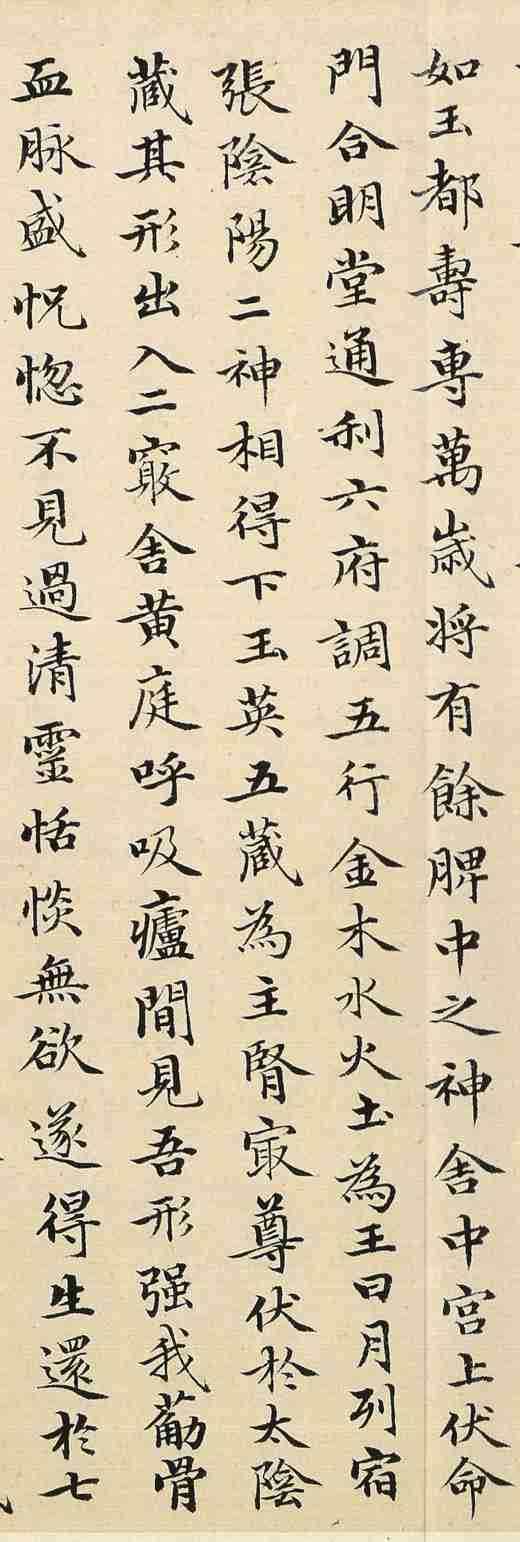 如玉都壽專萬歲将有餘脾中之神舍中宮上伏命
門合明堂通利六府調五行金木水火土為王日月列宿
張陰陽二神相得下玉英五藏為主腎㝡尊伏於太陰
藏其形出入二竅舍黄庭呼吸廬間見吾形强我筋骨
血脉盛怳惚不見過清靈恬惔無欲遂得生還於七